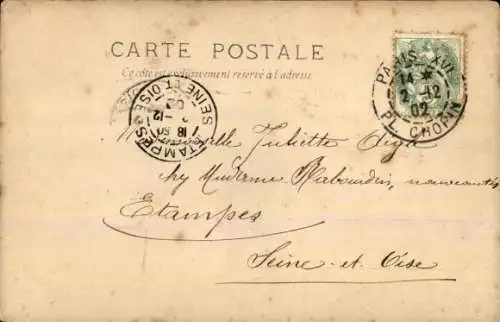 CARTE POSTALE
Ce côté est exclusivement réservé à l'adresse
PARIS XVI
14 *
2 -12
02
PL. CHOPIN
ETAMPES
18 50
-12
02
SEINE ET OISE
Mademoiselle Juliette
chez Madame Rabourdin,
Etampes
Seine-et-Oise